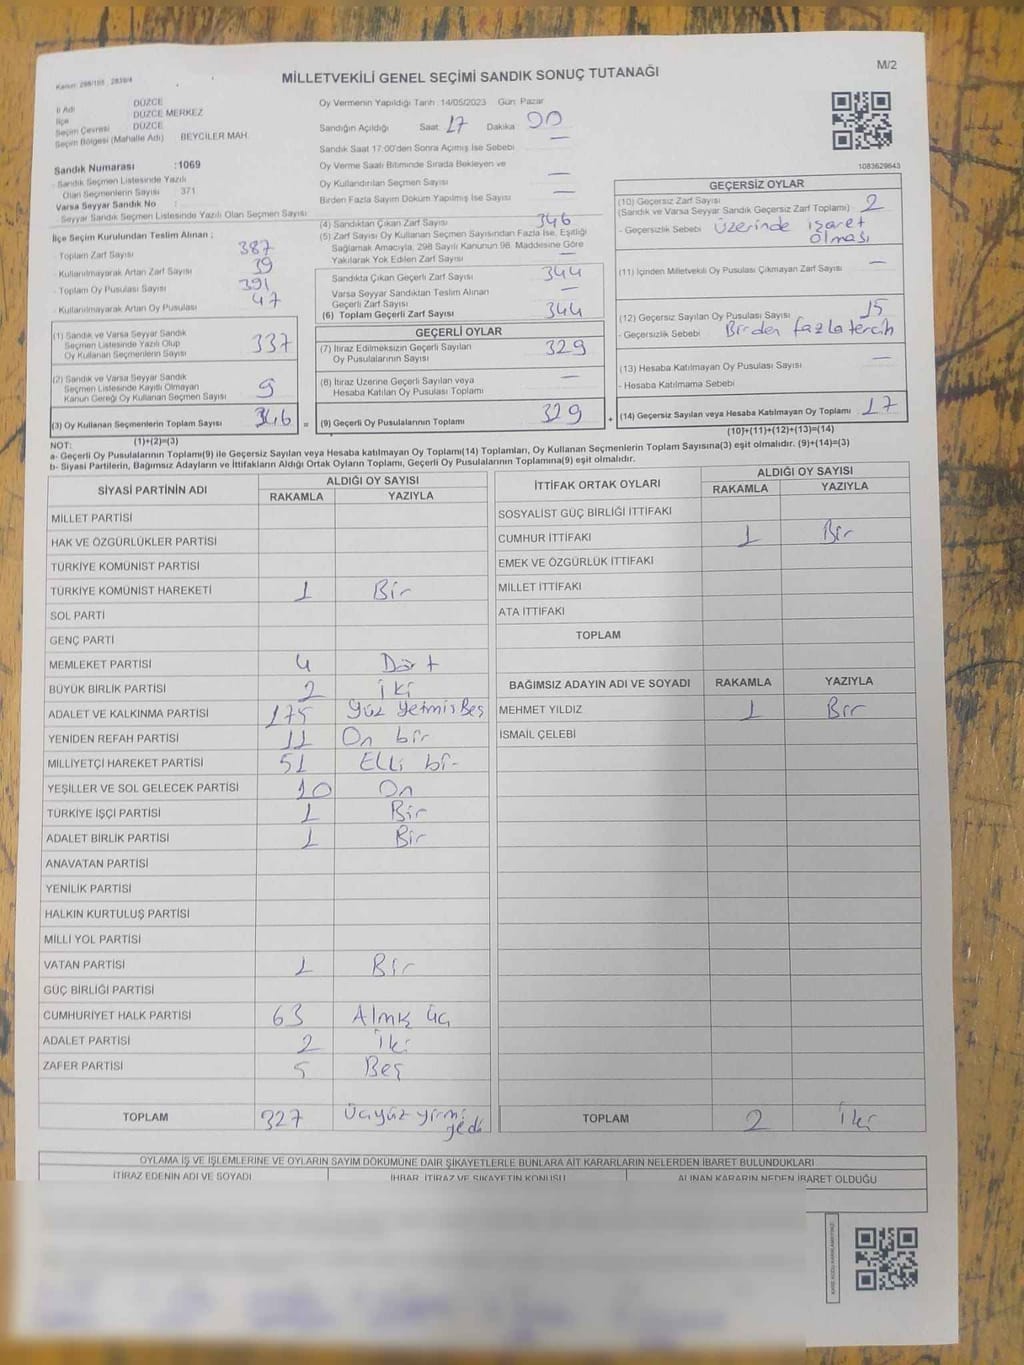 Kanun: 298/105 , 2839/4
MİLLETVEKİLİ GENEL SEÇİMİ SANDIK SONUÇ TUTANAĞI
M/2
İl Adı DÜZCE
İlçe DÜZCE MERKEZ
Seçim Çevresi DÜZCE
Seçim Bölgesi (Mahalle Adı) BEYCİLER MAH.
Sandık Numarası :1069
- Sandık Seçmen Listesinde Yazılı
Olan Seçmenlerin Sayısı 371
Varsa Seyyar Sandık No :
- Seyyar Sandık Seçmen Listesinde Yazılı Olan Seçmen Sayısı
İlçe Seçim Kurulundan Teslim Alınan ;
- Toplam Zarf Sayısı 387
- Kullanılmayarak Artan Zarf Sayısı 39
- Toplam Oy Pusulası Sayısı 391
- Kullanılmayarak Artan Oy Pusulası 47
(1) Sandık ve Varsa Seyyar Sandık
Seçmen Listesinde Yazılı Olup
Oy Kullanan Seçmenlerin Sayısı 337
(2) Sandık ve Varsa Seyyar Sandık
Seçmen Listesinde Kayıtlı Olmayan
Kanun Gereği Oy Kullanan Seçmen Sayısı 9
(3) Oy Kullanan Seçmenlerin Toplam Sayısı 346
(1)+(2)=(3)
Oy Vermenin Yapıldığı Tarih :14/05/2023 Gün: Pazar
Sandığın Açıldığı Saat: 17 Dakika: 00
Sandık Saat 17:00'den Sonra Açılmış İse Sebebi —
Oy Verme Saati Bitiminde Sırada Bekleyen ve
Oy Kullandırılan Seçmen Sayısı —
Birden Fazla Sayım Döküm Yapılmış İse Sayısı —
(4) Sandıktan Çıkan Zarf Sayısı 346
(5) Zarf Sayısı Oy Kullanan Seçmen Sayısından Fazla İse, Eşitliği
Sağlamak Amacıyla, 298 Sayılı Kanunun 98. Maddesine Göre
Yakılarak Yok Edilen Zarf Sayısı —
Sandıkta Çıkan Geçerli Zarf Sayısı 344
Varsa Seyyar Sandıktan Teslim Alınan
Geçerli Zarf Sayısı —
(6) Toplam Geçerli Zarf Sayısı 344
GEÇERLİ OYLAR
(7) İtiraz Edilmeksizin Geçerli Sayılan
Oy Pusulalarının Sayısı 329
(8) İtiraz Üzerine Geçerli Sayılan veya
Hesaba Katılan Oy Pusulası Toplamı —
= (9) Geçerli Oy Pusulalarının Toplamı 329 +
1083629643
GEÇERSİZ OYLAR
(10) Geçersiz Zarf Sayısı
(Sandık ve Varsa Seyyar Sandık Geçersiz Zarf Toplamı) 2
- Geçersizlik Sebebi Üzerinde işaret
olması
(11) İçinden Milletvekili Oy Pusulası Çıkmayan Zarf Sayısı —
(12) Geçersiz Sayılan Oy Pusulası Sayısı 15
- Geçersizlik Sebebi Birden fazla tercih
(13) Hesaba Katılmayan Oy Pusulası Sayısı —
- Hesaba Katılmama Sebebi
(14) Geçersiz Sayılan veya Hesaba Katılmayan Oy Toplamı 17
(10)+(11)+(12)+(13)=(14)
NOT:
a- Geçerli Oy Pusulasının Toplamı(9) ile Geçersiz Sayılan veya Hesaba katılmayan Oy Toplamı(14) Toplamları, Oy Kullanan Seçmenlerin Toplam Sayısına(3) eşit olmalıdır. (9)+(14)=(3)
b- Siyasi Partilerin, Bağımsız Adayların ve İttifakların Aldığı Ortak Oyların Toplamı, Geçerli Oy Pusulalarının Toplamına(9) eşit olmalıdır.
SİYASİ PARTİNİN ADI ALDIĞI OY SAYISI
RAKAMLA YAZIYLA
MİLLET PARTİSİ
HAK VE ÖZGÜRLÜKLER PARTİSİ
TÜRKİYE KOMÜNİST PARTİSİ
TÜRKİYE KOMÜNİST HAREKETİ 1 Bir
SOL PARTİ
GENÇ PARTİ
MEMLEKET PARTİSİ 4 Dört
BÜYÜK BİRLİK PARTİSİ 2 İki
ADALET VE KALKINMA PARTİSİ 175 Yüz Yetmiş Beş
YENİDEN REFAH PARTİSİ 11 On bir
MİLLİYETÇİ HAREKET PARTİSİ 51 Elli bir
YEŞİLLER VE SOL GELECEK PARTİSİ 10 On
TÜRKİYE İŞÇİ PARTİSİ 1 Bir
ADALET BİRLİK PARTİSİ 1 Bir
ANAVATAN PARTİSİ
YENİLİK PARTİSİ
HALKIN KURTULUŞ PARTİSİ
MİLLİ YOL PARTİSİ
VATAN PARTİSİ 1 Bir
GÜÇ BİRLİĞİ PARTİSİ
CUMHURİYET HALK PARTİSİ 63 Altmış üç
ADALET PARTİSİ 2 İki
ZAFER PARTİSİ 5 Beş
TOPLAM 327 Üçyüz yirmi
yedi
İTTİFAK ORTAK OYLARI ALDIĞI OY SAYISI
RAKAMLA YAZIYLA
SOSYALİST GÜÇ BİRLİĞİ İTTİFAKI
CUMHUR İTTİFAKI 1 Bir
EMEK VE ÖZGÜRLÜK İTTİFAKI
MİLLET İTTİFAKI
ATA İTTİFAKI
TOPLAM
BAĞIMSIZ ADAYIN ADI VE SOYADI RAKAMLA YAZIYLA
MEHMET YILDIZ 1 Bir
İSMAİL ÇELEBİ
TOPLAM 2 İki
OYLAMA İŞ VE İŞLEMLERİNE VE OYLARIN SAYIM DÖKÜMÜNE DAİR ŞİKAYETLERLE BUNLARA AİT KARARLARIN NELERDEN İBARET BULUNDUKLARI
İTİRAZ EDENİN ADI VE SOYADI İHBAR, İTİRAZ VE ŞİKAYETİN KONUSU ALINAN KARARIN NEDEN İBARET OLDUĞU